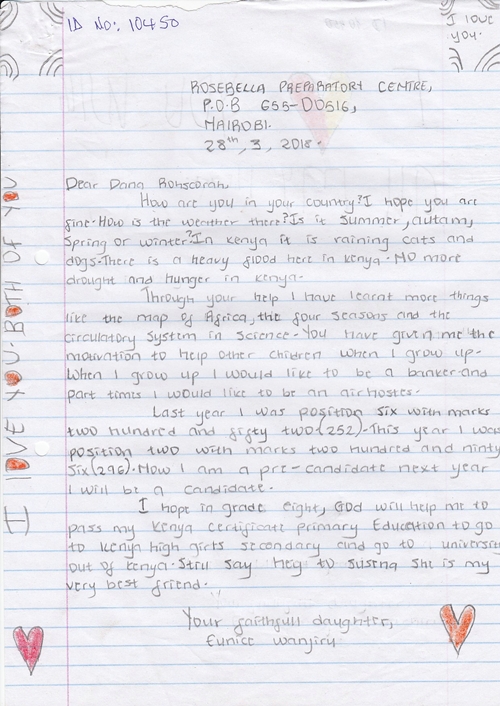 ID No: 10450
I love
you.
ROSEBELLA PREPARATORY CENTRE,
P.O.B 655-00516,
NAIROBI.
28th, 3, 2018.
Dear Dana
How are you in your country? I hope you are
fine. How is the weather there? Is it summer, autam,
spring or winter? In kenya it is raining cats and
dogs. There is a heavy flood here in kenya. NO more
drought and hunger in kenya.
Through your help I have learnt more things
like the map of Africa, the four seasons and the
circulatory system in science. You have given me the
motivation to help other children when I grow up.
When I grow up I would like to be a banker and
part times I would like to be an airhostes.
Last year I was position six with marks
two hundred and fifty two (252). This year I was
position two with marks two hundred and ninty
six (296). Now I am a pre-candidate next year
I will be a candidate.
I hope in grade eight, God will help me to
pass my kenya certificate primary Education to go
to kenya high girls secondary and go to universit
out of kenya. Still say hey to Susena she is my
very best friend.
Your faithfull daughter,
Eunice wanjiru
I LOVE YOU BOTH OF YOU